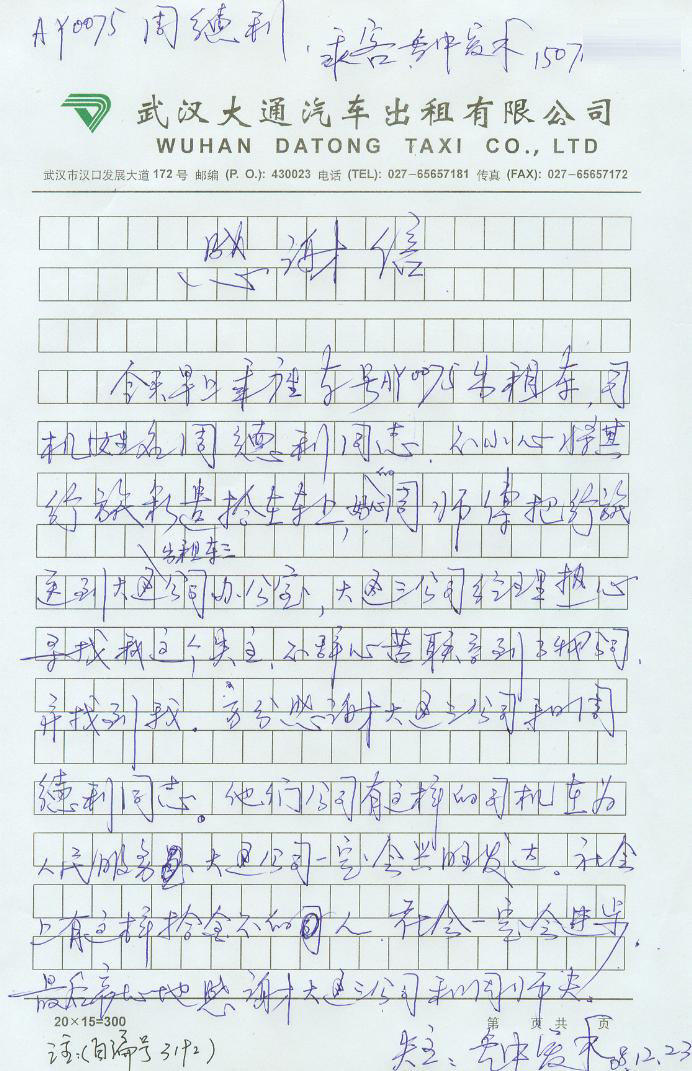 AY0075 周德利
乘客 1507
武汉大通汽车出租有限公司
WUHAN DATONG TAXI CO., LTD
武汉市汉口发展大道172号 邮编 (P. O.): 430023 电话 (TEL): 027-65657181 传真 (FAX): 027-65657172
感谢信
今天早上乘座车号AY0075出租车,司
机姓名周德利同志.不小心将其
行旅遗拾在车上,好心的周师傅把行旅
出租车三
送到大通公司办公室,大通三公司经理热心
寻找我这个失主,不辞心苦联系到了我公司,
并找到我.万分感谢大通三公司和周
德利同志。他们公司有这样的司机在为
人民服务,大通公司一定会兴旺发达。社会
上有这样拾金不的人.社会一定会进步.
最后衷心地感谢大通三公司和周师夫。
20×15=300
第 页 共 页
注:(自编号3192)
失主: 08.12.23